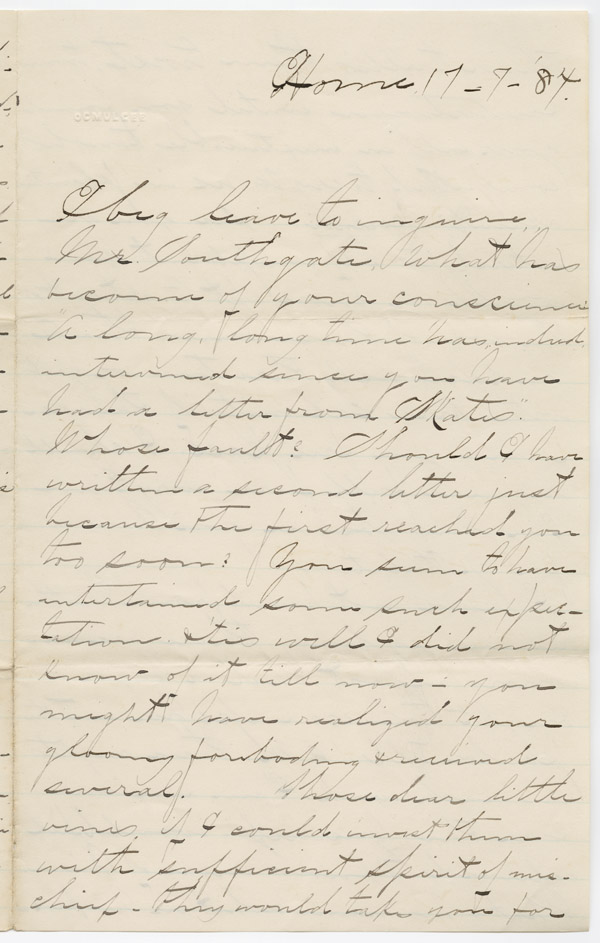 OCMULGEE
Home 17-7-'84.
I beg leave to inquire,
Mr. Southgate, what has
become of your conscience
"A long, long time has, indeed,
intervened since you have
had a letter from "Kate".
Whose fault? Should I have
written a second letter just
because the first reached you
too soon? You seem to have
entertained some such expec-
tation & tis well I did not
know of it till now - you
might have realized your
gloomy foreboding & received
several. Those dear little
vines, if I could invest them
with sufficient spirit of mis-
chief - they would take you for